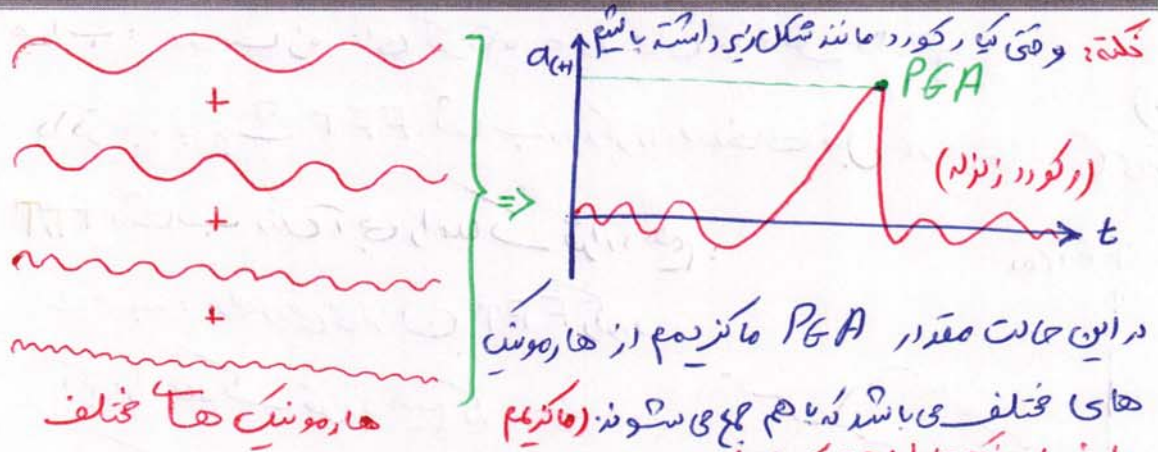 نکته: وقتی یک رکورد مانند شکل زیر داشته باشیم
a(t)
PGA
(رکورد زلزله)
t
+
+
+
=>
در این حالت مقدار PGA ماکزیمم از هارمونیک
های مختلف می باشد که با هم جمع می شوند. (ماکزیمم
هارمونیک های مختلف